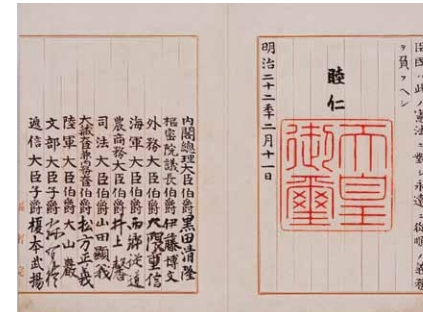 臣民ハ此ノ憲法ニ對シ永遠ニ從順ノ義務
ヲ負フヘシ
睦仁
天皇御璽
明治二十二年二月十一日
內閣總理大臣伯爵黑田清隆
樞密院議長伯爵伊藤博文
外務大臣伯爵大隈重信
海軍大臣伯爵西鄉從道
農商務大臣伯爵井上馨
司法大臣伯爵山田顯義
大藏大臣兼內務大臣伯爵松方正義
陸軍大臣伯爵大山巖
文部大臣子爵森有禮
遞信大臣子爵榎本武揚